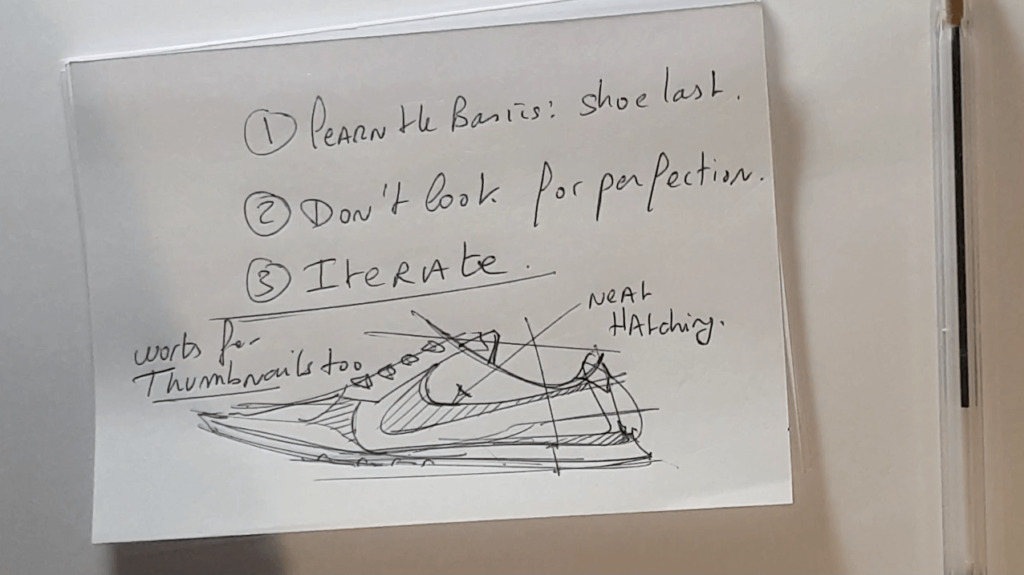 ① LEARN the Basics: shoe last.
② Don't look for perfection.
③ ITERATE.
works for
Thumbnails too
NEAT
HAtching.